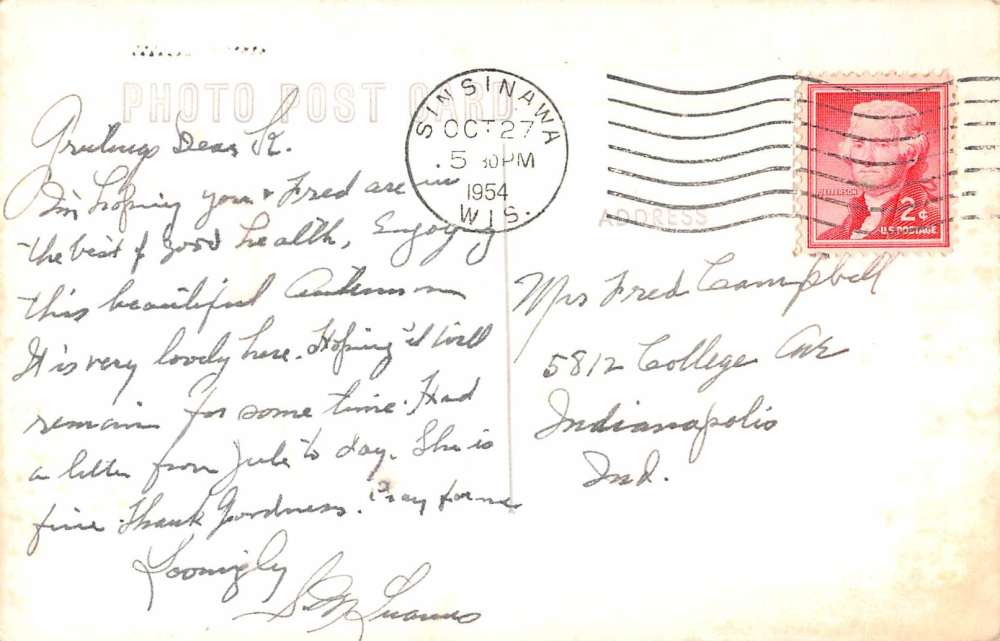 PHOTO POST CARD
SINSINAWA
OCT 27
5 30 PM
1954
WIS.
JEFFERSON
2¢
U.S. POSTAGE
ADDRESS
Greetings Dear K.
I'm hoping you & Fred are in
the best of good health, Enjoying
this beautiful Autumn
It is very lovely here. Hoping it will
remain for some time. Had
a letter from Jule to day. She is
fine. Thank Goodness. Pray for me
Lovingly
S. M.
Mrs Fred Campbell
5812 College Ave
Indianapolis
Ind.